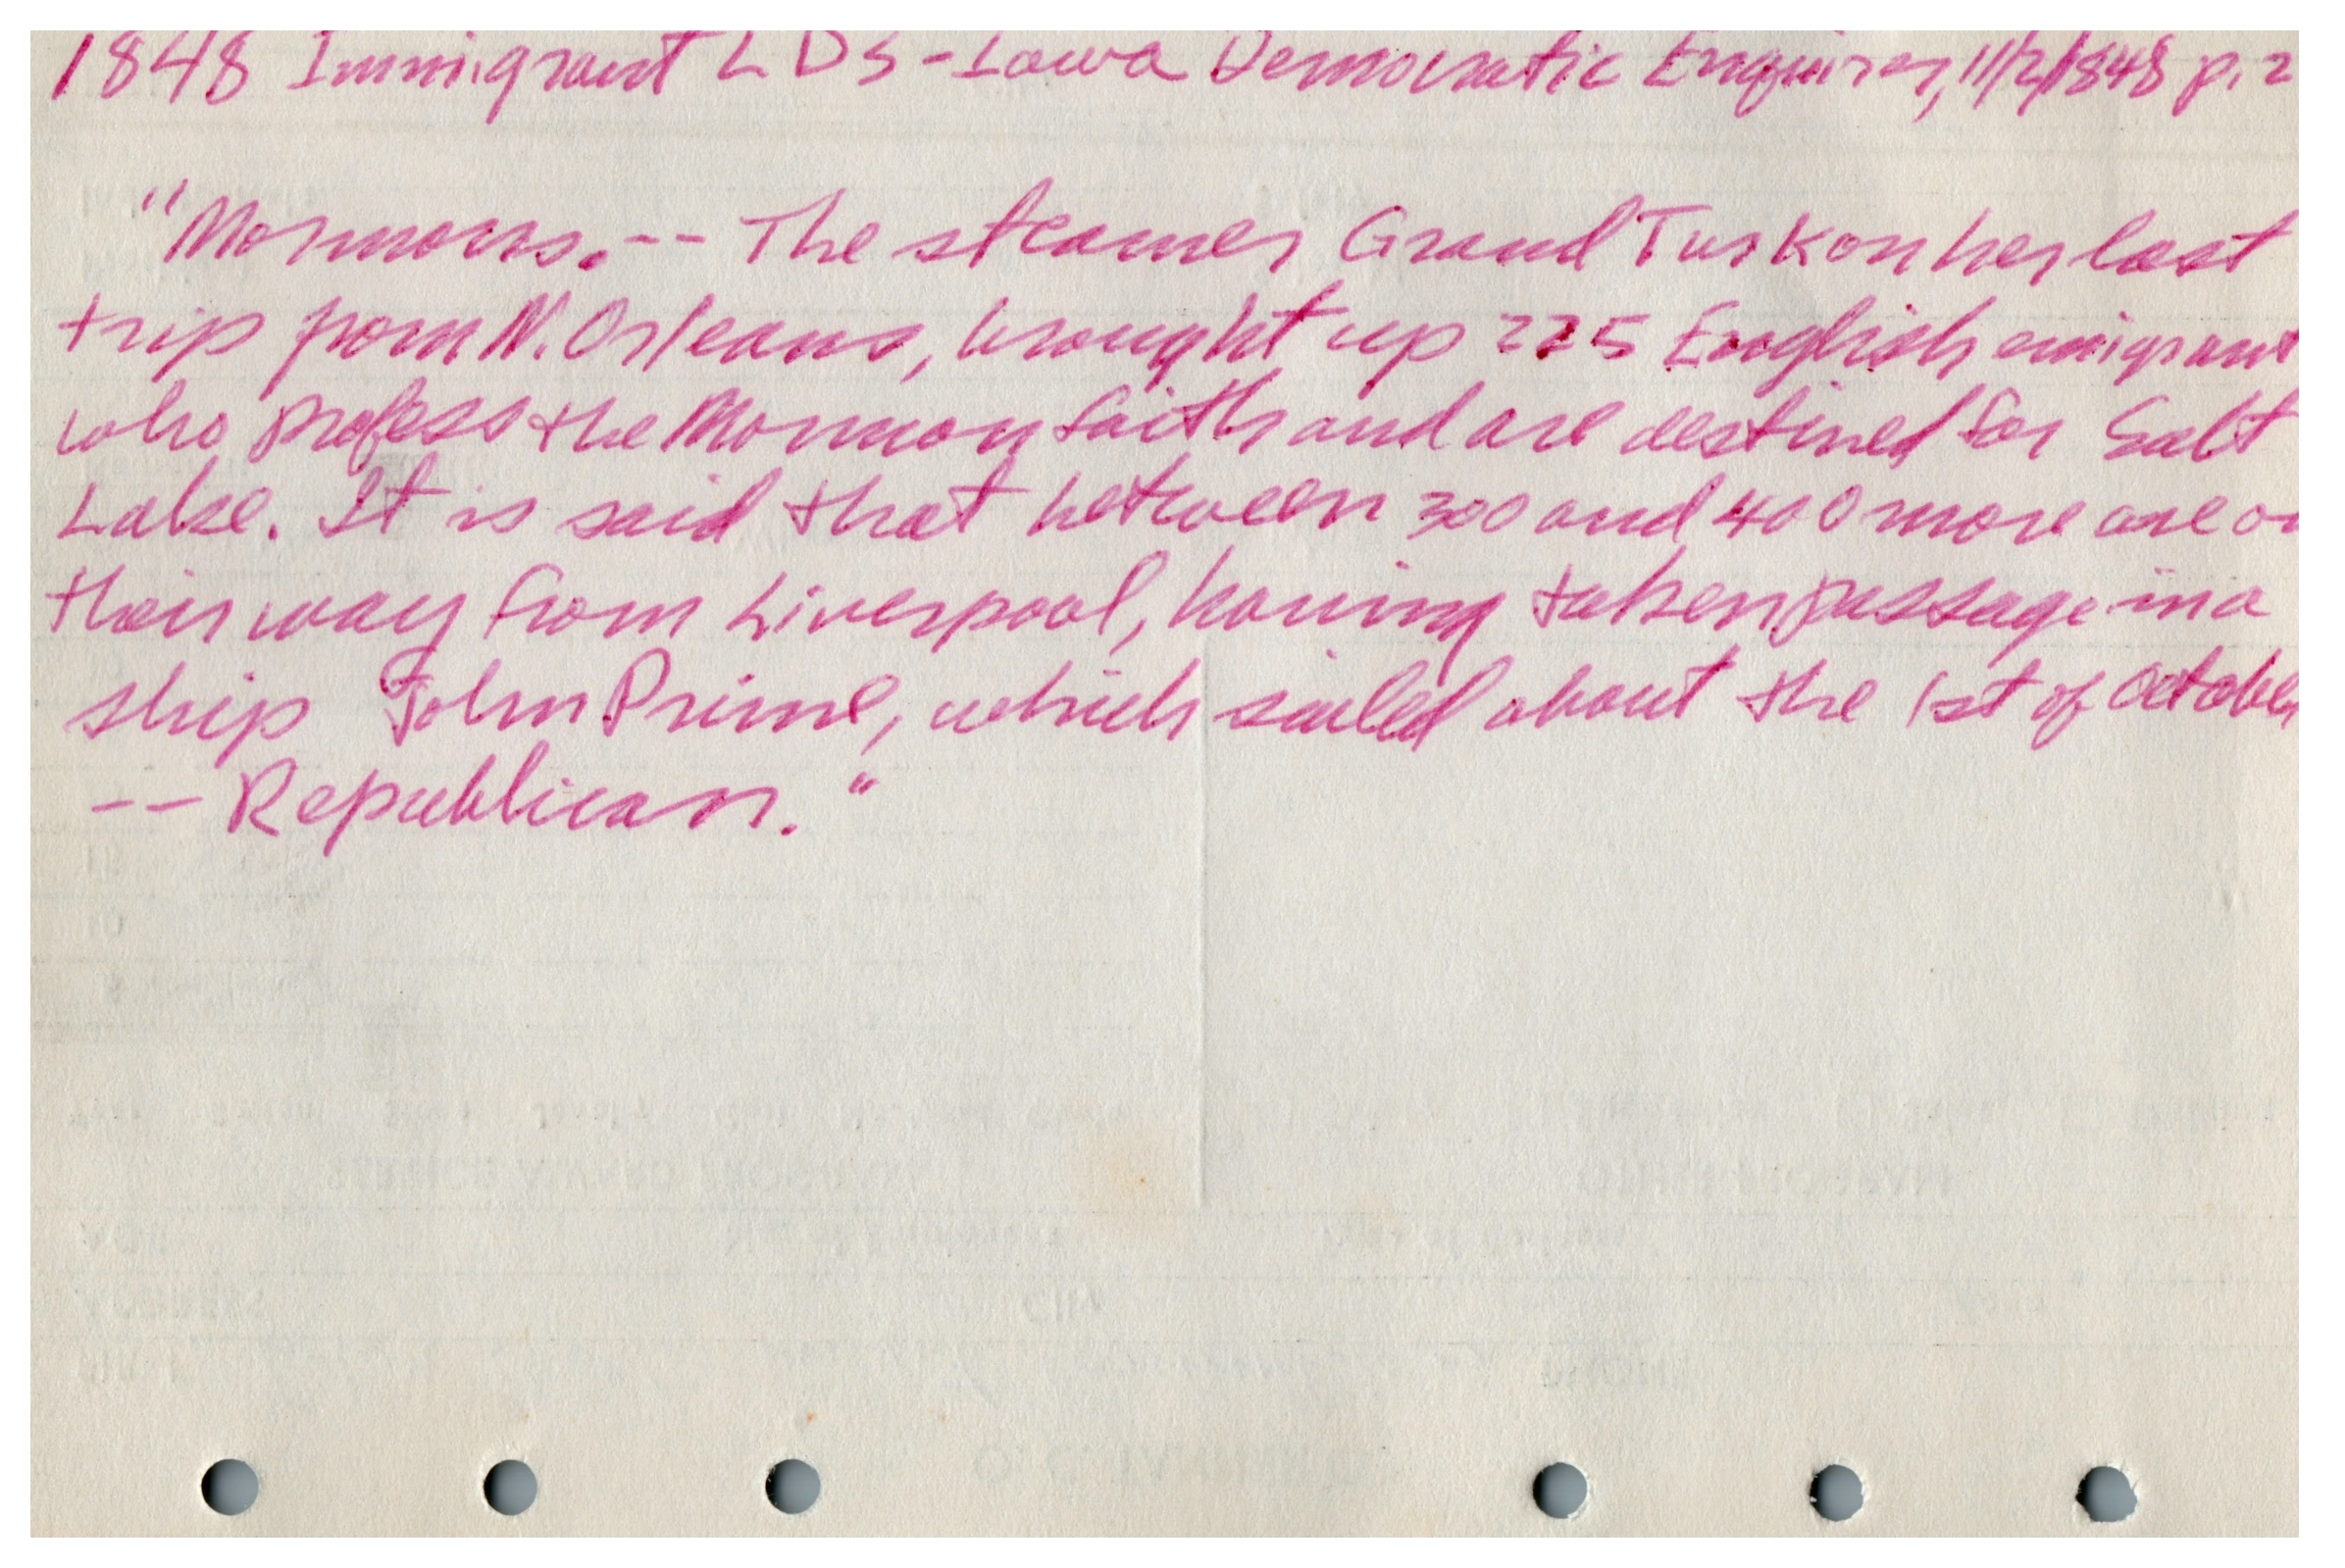 1848 Immigrant LDS - Iowa Democratic Enquirer, 11/2/1848 p. 2
"Mormons. -- The steamer Grand Turk on her last
trip from N. Orleans, brought up 225 English emigrant
who profess the Mormon faith and are destined for Salt
Lake. It is said that between 300 and 400 more are on
their way from Liverpool, having taken passage in a
ship John Prime, which sailed about the 1st of October
-- Republican."